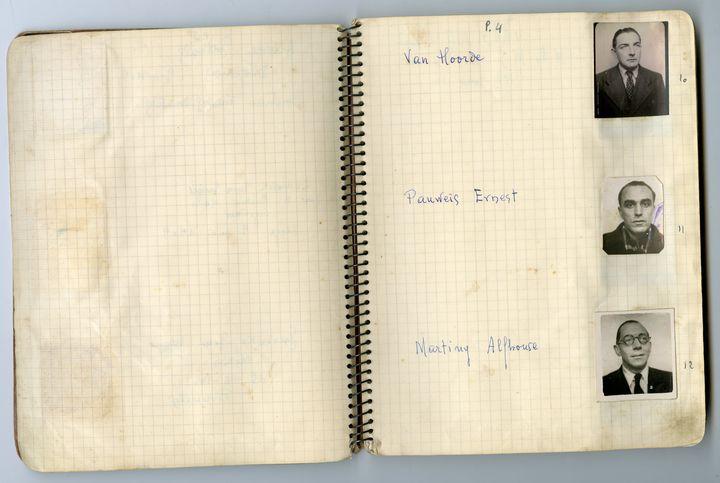 P.4
Van Hoorde
10
Pauwels Ernest
11
Martiny Alphonse
12